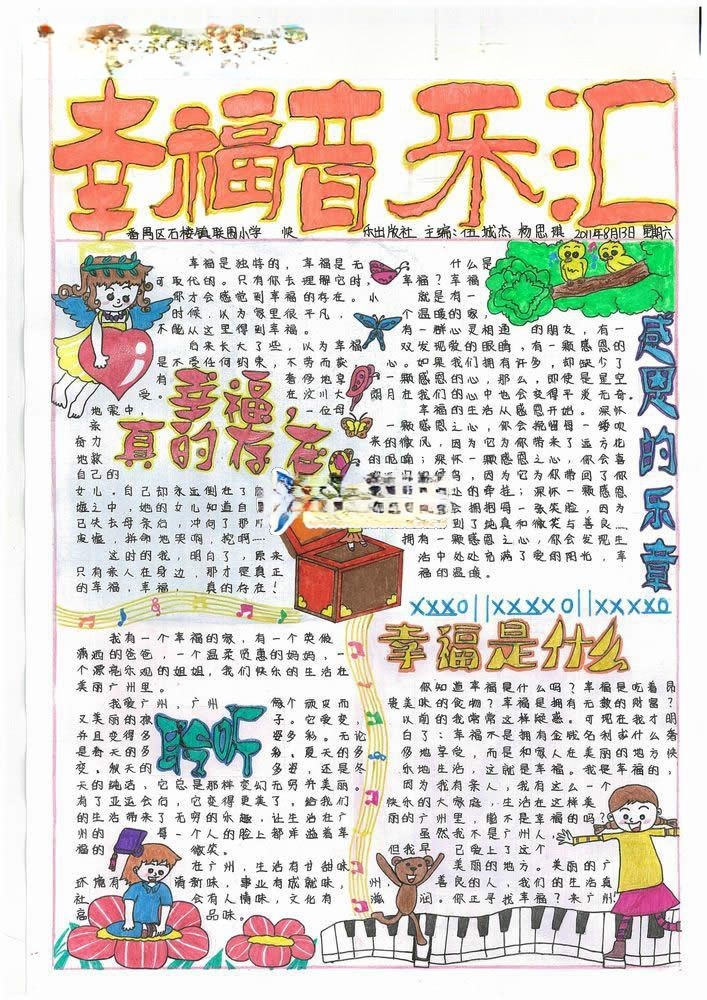 幸福音乐汇
番禺区石楼镇联围小学 快乐出版社 主编:伍城杰 杨思琪 2011年8月13日 星期六
幸福是独特的,幸福是无
可取代的。只有你去理解它时,
你才会感觉到幸福的存在。小
时候,认为家里很平凡,
不能从这里得到幸福。
后来长大了些,以为幸福
是不受任何约束,不劳而获
有 着侈地享
受。 在汶川大
地震中, 一位母
亲
奋力
地救
自己的
女儿。自己却永远倒在了
墟之中,她的女儿知道自
己失去母亲后,冲向了那片
废墟,拼命地哭啊,挖啊……
这时的我,明白了,原来
只有亲人在身边,那才是真正
的幸福,幸福,真的存在!
幸福,
真的存在
什么是
幸福?幸福
就是有一
个温暖的家,
有一群心灵相通 的朋友,有一
双发现爱的眼睛,有一颗感恩的
心。如果我们拥有许多,却缺少了
一颗感恩的心,那么,即使是星空
朗月在我们的心中也会变得平淡无奇。
幸福的生活从感恩开始。深怀
一颗感恩之心,你会挽留每一缕吹
来的微风,因为它为你带来了远方花
的呢喃;深怀一颗感恩之心,你会喜
候鸟,因为它为你带回了
处的牵挂;深怀一颗感恩
会拥抱每一张笑脸,因为
到了纯真和微笑与善良……
拥有一颗感恩之心,你会发现生
活中处处充满了爱的阳光,幸
福的温暖。
感恩的乐章
XXXO||XXXXO||XXXXO
我有一个幸福的家,有一个英俊
潇洒的爸爸,一个温柔贤惠的妈妈,一
个漂亮乐观的姐姐,我们快乐的生活在
美丽广州里。
我爱广州,广州 像个顽皮而
又美丽的孩 子。它爱变,
并且变得多 姿多彩。无论
是春天的多 彩。夏天的多
变。秋天的 多姿,还是冬
天的纯洁,它总是那样变幻无穷并美丽。
有了亚运会后,它变得更美了,给我们
的生活带来了无穷的乐趣,让生活在广
州的 每一个人的脸上都洋溢着幸
福的 微笑。
在广州,生活有甘甜味,
环境有 清新味,事业有成就味,
社 会有人情味,文化有
富 品味。
聆听
幸福是什么
你知道幸福是什么吗?幸福是吃着昂
贵美味的食物?幸福是拥有无数的财富?
以前的我常常这样疑惑。可现在我才明
白了:幸福不是拥有金钱名利或什么奢
侈地享受,而是和家人在美丽的地方快
乐地生活,这就是幸福。我是幸福的,
因为我有亲人,我有这么一个
快乐的大家庭,生活在这样美
丽的广州里,能不是幸福的吗?
虽然我不是广州人,
但我早 已爱上了这个
美丽的地方。美丽的广
州, 善良的人,我们的生活真
滋 润。你正寻找幸福?来广州!